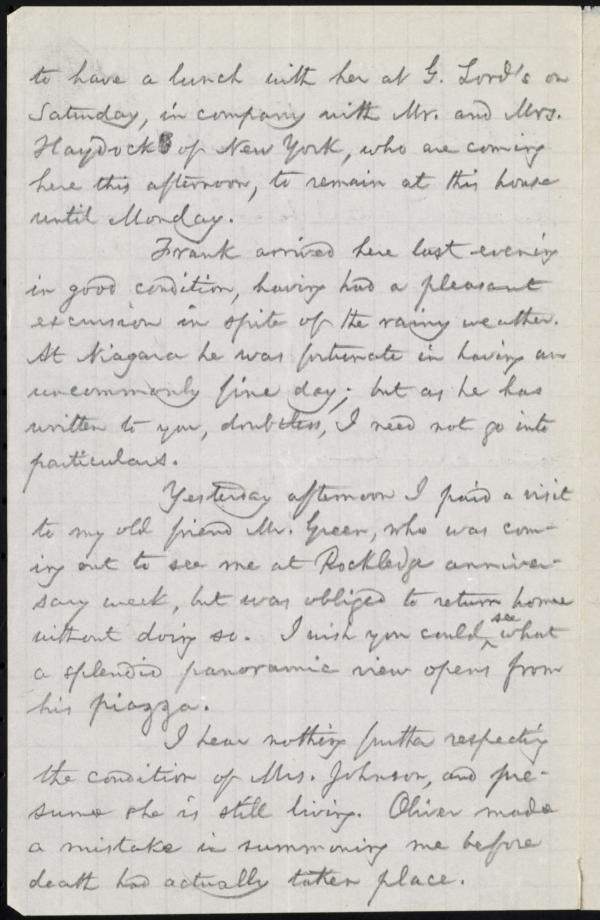 to have a lunch with her at G. Lord's on
Saturday, in company with Mr. and Mrs.
Haydock of New York, who are coming
here this afternoon, to remain at this house
until Monday.
Frank arrived here last evening
in good condition, having had a pleasant
excursion in spite of the rainy weather.
At Niagara he was fortunate in having an
uncommonly fine day; but as he has
written to you, doubtless, I need not go into
particulars.
Yesterday afternoon I paid a visit
to my old friend Mr. Green, who was com-
ing out to see me at Rockledge anniver-
sary week, but was obliged to return home
without doing so. I wish you could see what
a splendid panoramic view opens from
his piazza.
I hear nothing further respecting
the condition of Mrs. Johnson, and pre-
sume she is still living. Oliver made
a mistake in summoning me before
death had actually taken place.